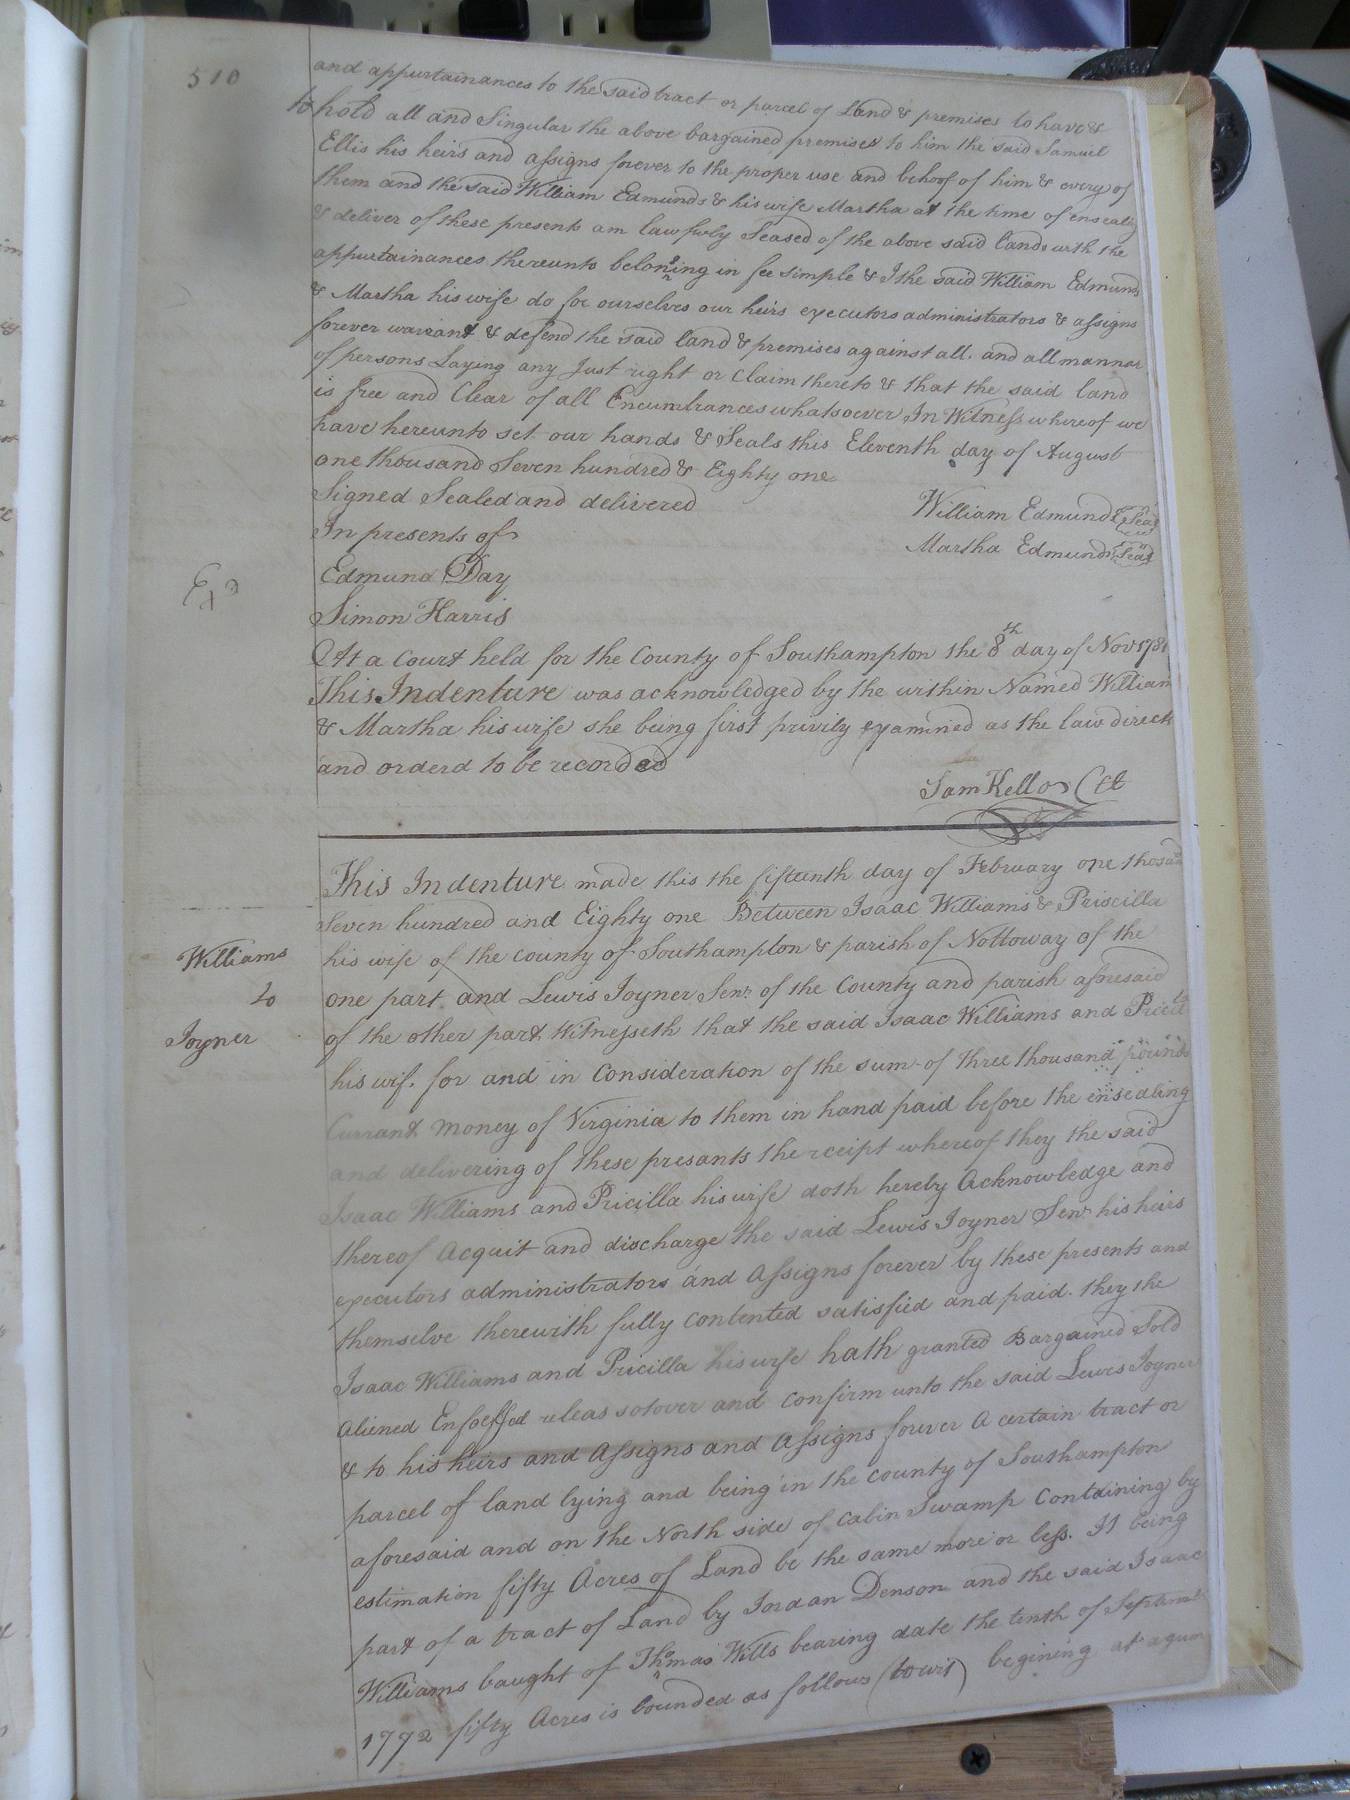 510
and appurtainances to the said tract or parcel of Land & premises to have &
to hold all and Singular the above bargained premises to him the said Samuel
Ellis his heirs and assigns forever to the proper use and behoof of him & every of
them and the said William Edmunds & his wife Martha at the time of ensealg
& deliver of these presents am lawfuly Seased of the above said Lands with the
appurtainances thereunto belonging in fee simple & I the said William Edmunds
& Martha his wife do for ourselves our heirs executors administrators & assigns
forever warrant & defend the said land & premises against all and all mannar
of persons Laying any Just right or Claim thereto & that the said land
is free and Clear of all Encumbrances whatsoever In Witness whereof we
have hereunto set our hands & Seals this Eleventh day of August
one thousand Seven hundred & Eighty one
Signed Sealed and delivered
William Edmunds Seal
In presents of
Martha Edmunds Seal
Edmund Day
Exd
Simon Harris
At a Court held for the County of Southampton the 8th day of Nov 1781
This Indenture was acknowledged by the within Named William
& Martha his wife she being first privily examined as the law directs
and orderd to be recorded
Sam Kello Ct
This Indenture made this the fifteenth day of February one thosand
Seven hundred and Eighty one Between Isaac Williams & Priscilla
Williams to Joyner
his wife of the county of Southampton & parish of Nottoway of the
one part and Lewis Joyner Senr of the County and parish aforesaid
of the other part Witnesseth that the said Isaac Williams and Pricilla
his wif. for and in Consideration of the sum of three thousand pounds
Currant money of Virginia to them in hand paid before the ensealing
and delivering of these presants the rceipt whereof they the said
Isaac Williams and Pricilla his wife doth hereby Acknowledge and
thereof Acquit and discharge the said Lewis Joyner Senr his heirs
executors administrators and Assigns forever by these presents and
themselve therewith fully contented satisfied and paid. they the
Isaac Williams and Pricilla his wife hath granted Bargained Sold
Aliened Enfoeffed releas sotover and confirm unto the said Lewis Joyner
& to his heirs and Assigns and Assigns forever A certain tract or
parcel of land lying and being in the county of Southampton
aforesaid and on the North side of Cabin Swamp Containing by
estimation fifty Acres of Land be the same more or less. It being
part of a tract of Land by Jordan Denson and the said Isaac
Williams baught of Thomas Wills bearing date the tenth of Septembr
1772 fifty Acres is bounded as follows (towis) begining at a gum